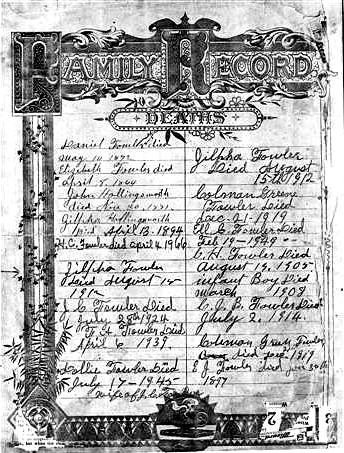 FAMILY RECORD.
DEATHS
Daniel Fowlkes died
May 10 1872
Elizabeth Fowler died
April 8, 1844
John Hollingsworth
died Nov. 20, 1871
Zilpha Hollingsworth
Died April 13. 1894
H.C. Fowler died April 4 1966
Zilpha Fowler
Died August 15
1912
J. C. Fowler Died
28th 1924
H. Fowler Died
April 6 1939
Dollie Fowler Died
July 17-1945
Wife of J.C.
Zilpha Fowler
Died August
15th 1912
Colman Green
Fowler Died
Dec-21-1919
C. Fowler Died
Feb 19-1949
C. H. Fowler Died
August 19, 1905
infant Boy Died
March 1909
C. Fowler Died
July 2, 1914.
Coleman Green Fowler
died 1919
E J Fowler died Jan 30th
1897